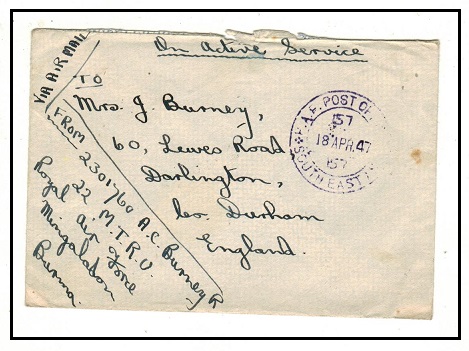 On Active Service
VIA AIR MAIL
TO
Mrs. J Burney,
60, Lewes Road
Darlington,
Co. Durham
England.
FROM 2301760 A.C. Burney R
22 M.T.R.U.
Royal Air Force
Mingaladon
Burma.
R.A.F. POST OF
157
18 APR. 47
157
SOUTH EAST A